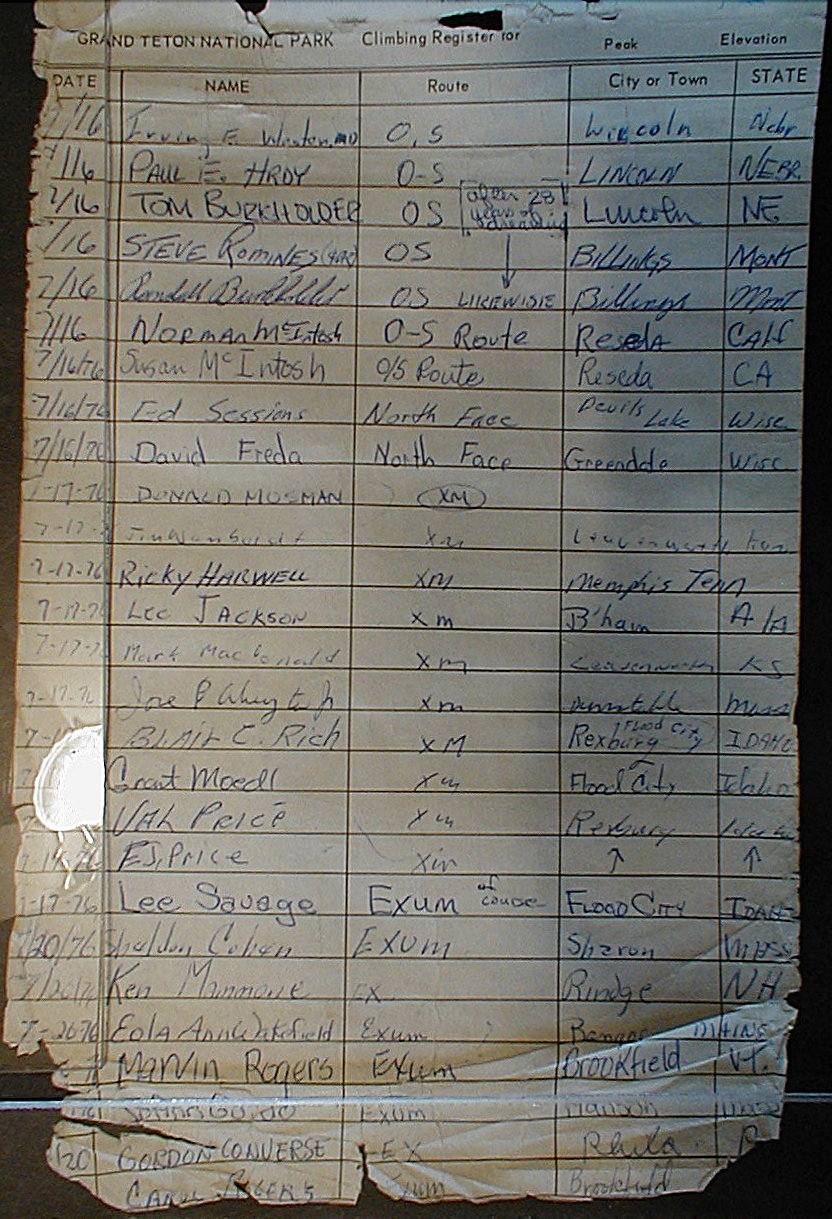 GRAND TETON NATIONAL PARK Climbing Register for Peak Elevation
DATE NAME Route City or Town STATE
7/16 Irving F. MD O.S Lincoln Nebr
7/16 PAUL E. HRDY O-S LINCOLN NEBR.
7/16 TOM BURKHOLDER OS [after 28 years of dreaming] Lincoln NE.
7/16 STEVE ROMINES OS BILLINGS MONT
7/16 Burkholder OS LIKEWISE Billings Mont
7/16 NORMAN McIntosh O-S Route ReSedA CAlif
7/16/76 Susan McIntosh O/S Route Reseda CA
7/16/76 Ed Sessions North Face Devils Lake Wisc
7/16/76 David Freda North Face Greendale Wisc
7-17-76 DONALD MOSMAN XM
7-17-7 Jim XM Leavenworth Kan
7-17-76 Ricky HARWELL XM Memphis Tenn
7-17-76 Lee JACKSON X m B'ham AlA
7-17-76 Mark MacDonald X m Leavenworth KS
7-17-76 X m Mass
7-17 BlAir C. Rich X M Rexburg Flood City IDAHO
7 Grant Moedl X m Flood City Idaho
7 VAL PRICE X m Rexburg Idaho
7-17-76 E.J. Price Xm ↑ ↑
7-17-76 Lee Savage Exum of course FLOOD CITY IDAHO
7/20/76 Sheldon Cohen EXUM Sharon MASS
7/20/76 Ken EX Rindge NH
7-20-76 Eola Ann Wakefield Exum Bangor MAINE
Marvin Rogers Exum Brookfield Vt.
Exum Hanson Mass
/20 GORDON CONVERSE EX Phila. P
CAROL ROGERS Exum Brookfield